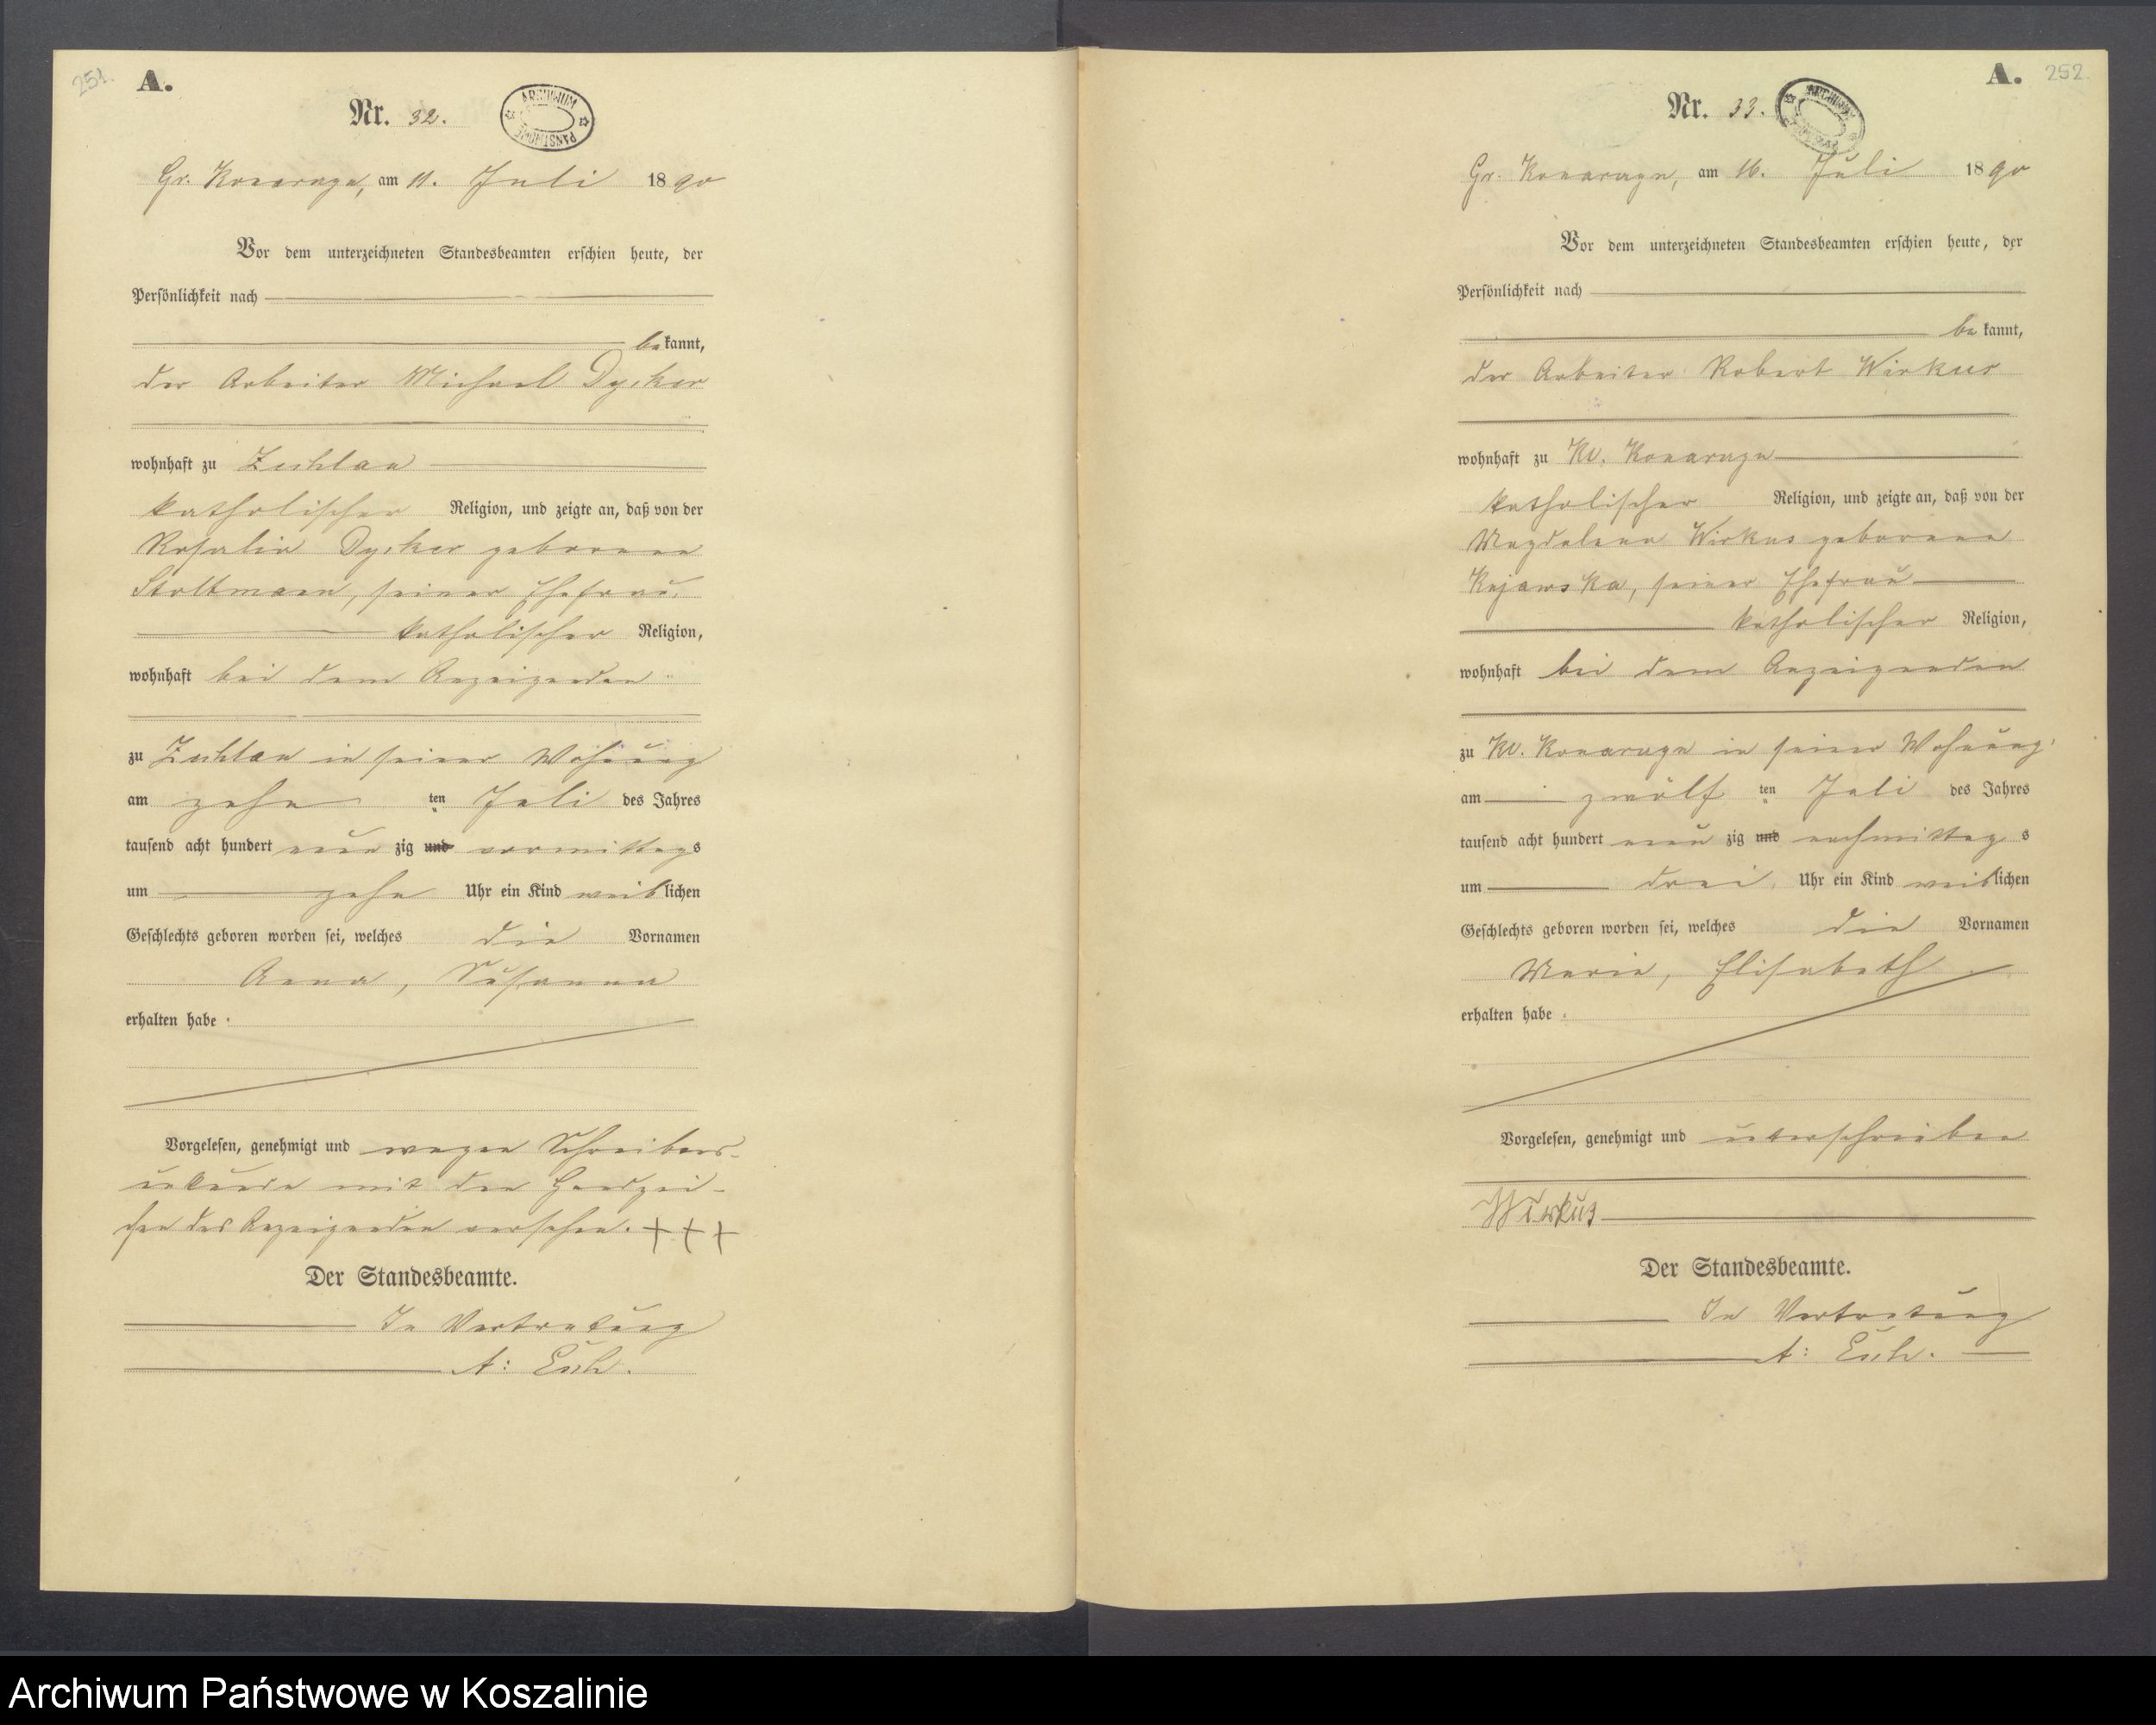 251.
A.
Nr. 32.
ARCHIWUM PAŃSTWOWE
Gr. Konarzyn, am 11. Juli 1890
Vor dem unterzeichneten Standesbeamten erschien heute, der
Persönlichkeit nach
bekannt,
der Arbeiter Michael Dycker
wohnhaft zu
katholischer Religion, und zeigte an, daß von der
Rosalie Dycker geborene
Stoltmann, seiner Ehefrau
katholischer Religion,
wohnhaft bei dem Anzeigenden
zu in seiner Wohnung
am zehn ten Juli des Jahres
tausend acht hundert neun zig und vormittags
um zehn Uhr ein Kind weiblichen
Geschlechts geboren worden sei, welches die Vornamen
Anna, Susanna
erhalten habe
Vorgelesen, genehmigt und wegen Schreibens-
unkunde mit den Handzei-
chen des Anzeigenden versehen. +++
Der Standesbeamte.
In Vertretung
A.
252
Nr. 33.
ARCHIWUM
Gr. Konarzyn, am 16. Juli 1890
Vor dem unterzeichneten Standesbeamten erschien heute, der
Persönlichkeit nach
bekannt,
der Arbeiter Robert Wirkus
wohnhaft zu Kl. Konarzyn
katholischer Religion, und zeigte an, daß von der
Magdalena Wirkus geborene
Kujawska, seiner Ehefrau
katholischer Religion,
wohnhaft bei dem Anzeigenden
zu Kl. Konarzyn in seiner Wohnung
am zwölf ten Juli des Jahres
tausend acht hundert neun zig und nachmittags
um drei Uhr ein Kind weiblichen
Geschlechts geboren worden sei, welches die Vornamen
Marie, Elisabeth
erhalten habe
Vorgelesen, genehmigt und unterschrieben
Wirkus
Der Standesbeamte.
In Vertretung
Archiwum Państwowe w Koszalinie